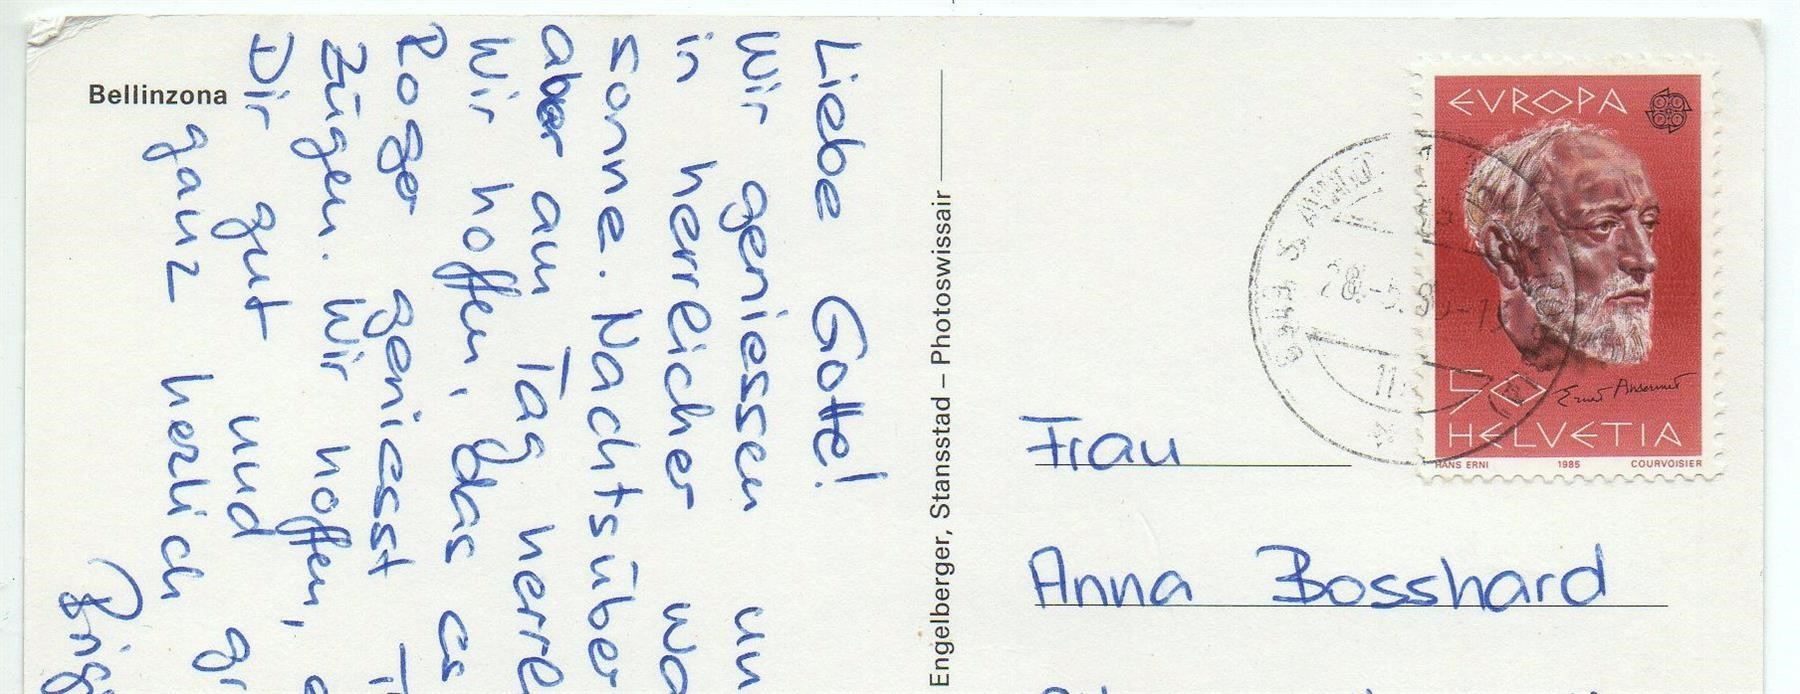 Bellinzona
Liebe Gotte!
Wir geniessen
in herrlicher
sonne. Nachtsüber
aber am Tag
Wir hoffen, das es
Roger geniesst
Zügen. Wir hoffen,
Dir gut und
ganz herzlich
Engelberger, Stansstad – Photoswissair
EVROPA
50
Ernest Ansermet
HELVETIA
HANS ERNI 1985 COURVOISIER
Frau
Anna Bosshard